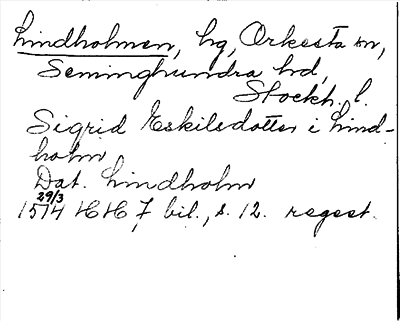 Lindholmen, hg, Orkesta sn,
Seminghundra hd,
Stockh. l.
Sigrid Eskilsdotter i Lind-
holm
Dat. Lindholm
29/3
1514 HH 7, bil., s. 12. regest.